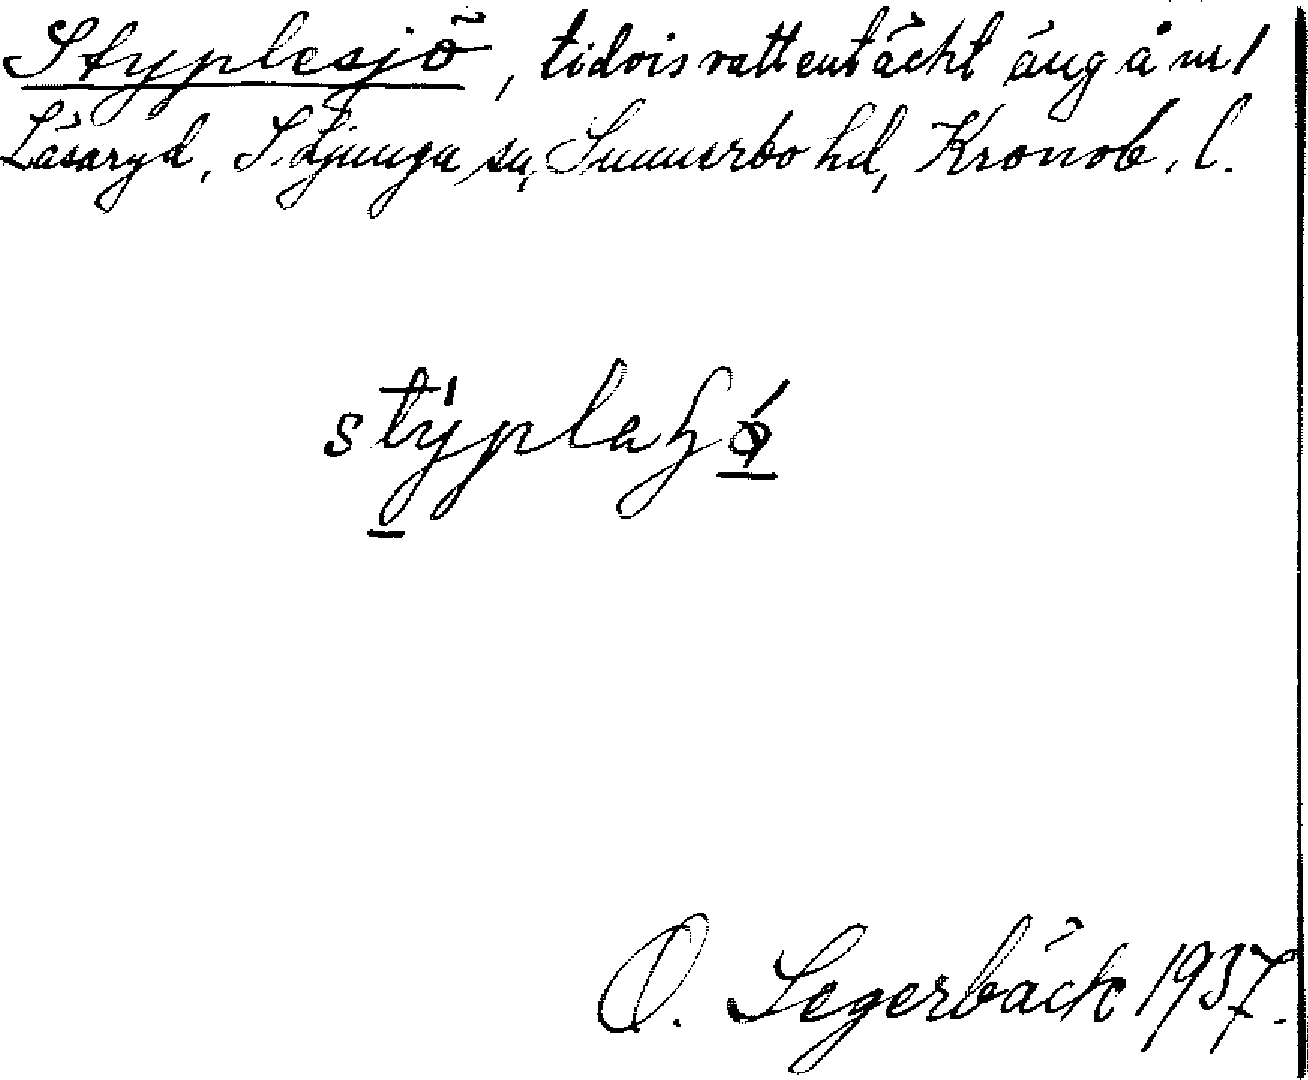 Styplesjö, tidvis vattentäckt äng å nr 1
Låsaryd, S. Ljunga sn, Sunnerbo hd, Kronob. l.
stýplaɧǿ
O. Segerbäck 1937.